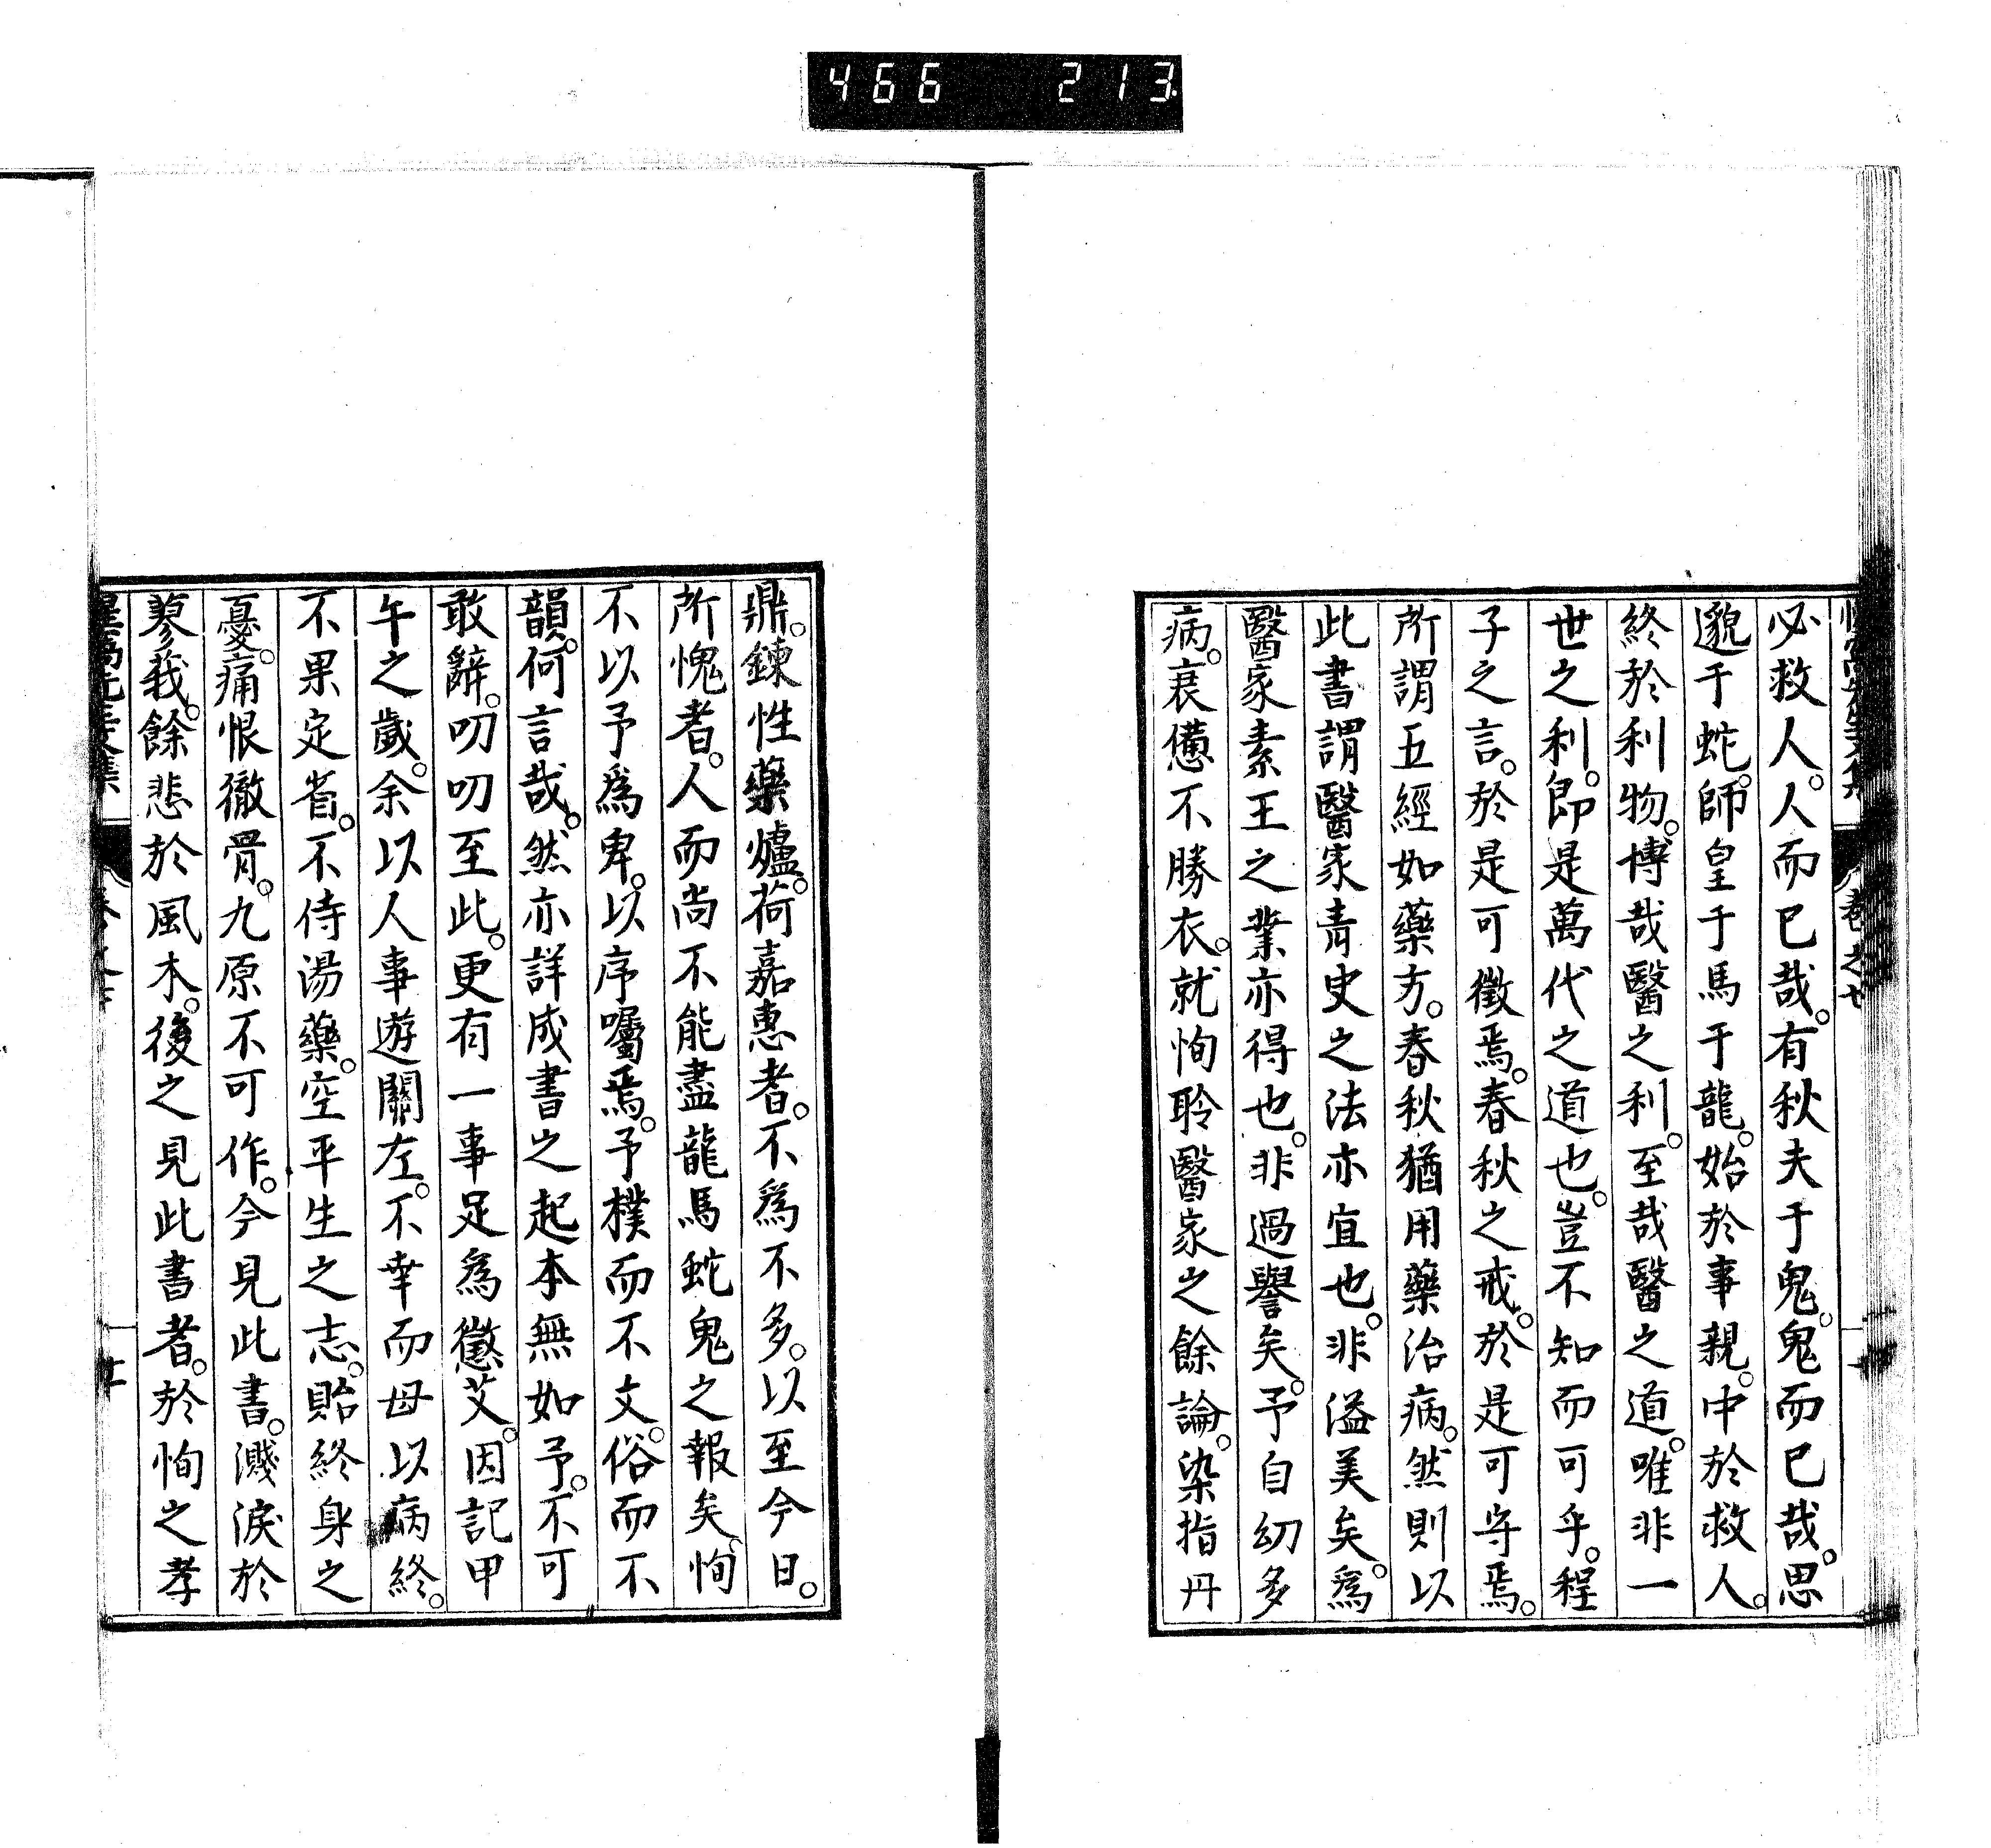 466 213
必救人。人而已哉。有秋夫于鬼。鬼而已哉。思
邈于蛇。師皇于馬于龍。始於事親。中於救人。
終於利物。博哉醫之利。至哉醫之道。唯非一
世之利。即是萬代之道也。豈不知而可乎。程
子之言。於是可徵焉。春秋之戒。於是可守焉。
所謂五經如藥方。春秋猶用藥治病。然則以
此書謂醫家青史之法亦宜也。非溢美矣。爲
醫家素王之業亦得也。非過譽矣。予自幼多
病。衰憊不勝衣。就恂聆醫家之餘論。染指丹
鼎。鍊性藥爐。荷嘉惠者。不爲不多。以至今日。
所愧者。人而尚不能盡龍馬蛇鬼之報矣。恂
不以予爲卑。以序囑焉。予樸而不文。俗而不
韻。何言哉。然亦詳成書之起本無如予。不可
敢辭。叨叨至此。更有一事足爲懲艾。因記甲
午之歲。余以人事遊關左。不幸而母以病終。
不果定省。不侍湯藥。空平生之志。貽終身之
憂。痛恨徹骨。九原不可作。今見此書。濺淚於
蓼莪。餘悲於風木。後之見此書者。於恂之孝